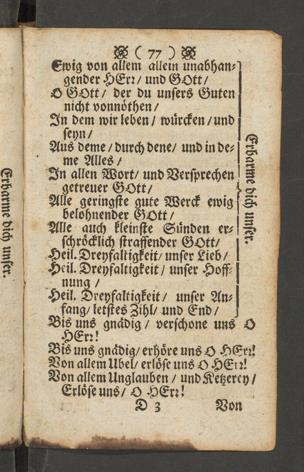 ( 77 )
Ewig von allem allein unabhan-
gender HErr / und GOtt /
O GOtt / der du unsers Guten
nicht vonnöthen /
In dem wir leben / würcken / und
seyn /
Aus deme / durch dene / und in de-
me Alles /
In allen Wort / und Versprechen
getreuer GOtt /
Alle geringste gute Werck ewig
belohnender GOtt /
Alle auch kleinste Sünden er-
schröcklich straffender GOtt /
Heil. Dreyfaltigkeit / unser Lieb /
Heil. Dreyfaltigkeit / unser Hoff-
nung /
Heil. Dreyfaltigkeit / unser An-
fang / letstes Zihl / und End /
Erbarme dich unser.
Bis uns gnädig / verschone uns O
HErr!
Bis uns gnädig / erhöre uns O HErr!
Von allem Ubel / erlöse uns O HErr!
Von allem Unglauben / und Ketzerey /
Erlöse uns / O HErr!
D 3 Von
Erbarme dich unser.